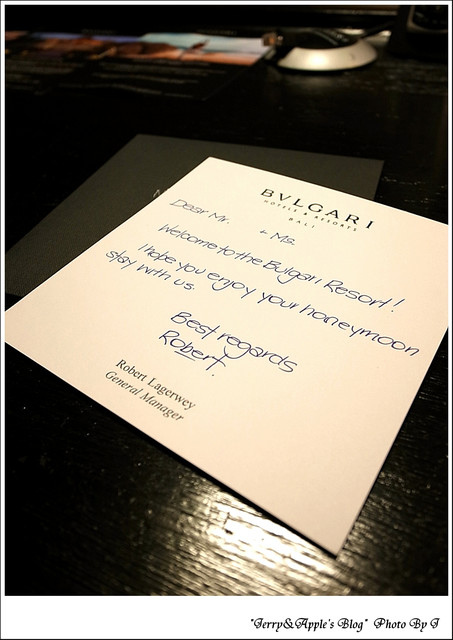 BVLGARI
HOTELS & RESORTS
BALI
Dear Mr. & Ms.
Welcome to the Bulgari Resort!
I hope you enjoy your honeymoon
stay with us.
Best regards
Robert.
Robert Lagerwey
General Manager
"Jerry&Apple's Blog" Photo By J